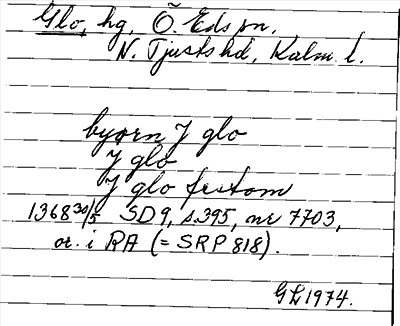 Glo, hg, Ö. Eds sn,
N. Tjusts hd, Kalm. l.
byørn J glo
J glo
J glo frestom
1368 30/5 SD9, s.395, nr 7703,
or. i RA (= SRP 818).
GL 1974.